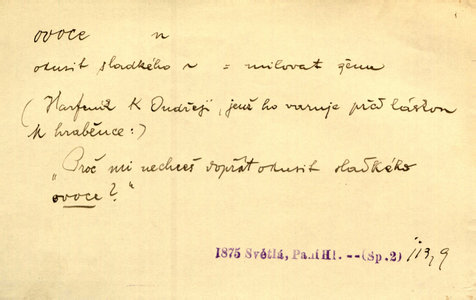 ovoce n
okusit sladkého ~ = milovat ženu
(Harfeník K Ondřeji, jenž ho varuje před láskou
k hraběnce:)
„Proč mi nechceš dopřát okusit sladkého
ovoce?"
1875 Světlá, Paní Hl. --(Sp.2) 113,9